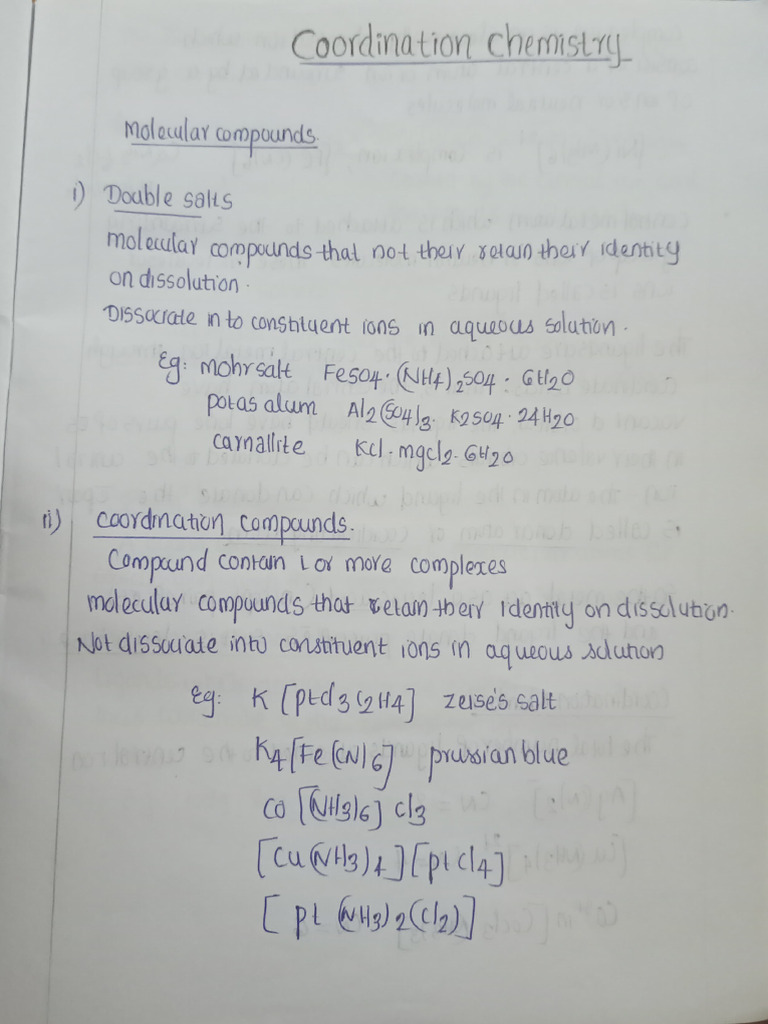 Coordination Chemistry
Molecular compounds.
i) Double salts
molecular compounds that not their retain their identity
on dissolution.
Dissociate in to constituent ions in aqueous solution.
Eg: mohr salt FeSO4. (NH4)2SO4. 6H2O
potas alum Al2(SO4)3. K2SO4. 24H2O
carnallite KCl. mgcl2. 6H2O
ii) coordination compounds.
Compound contain 1 or more complexes
molecular compounds that retain their identity on dissolution.
Not dissociate into constituent ions in aqueous solution
Eg: K [ptcl3 C2H4] zeise's salt
K4[Fe(CN)6] prussian blue
CO [(NH3)6] cl3
[Cu(NH3)4][ptCl4]
[ pt (NH3)2(Cl2)]